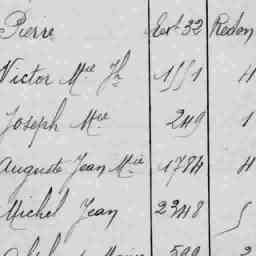 Pierre Ext 32 Redon
Victor Mie Jh 1551 4
Joseph Mie 249 1
Auguste Jean Mie 1784 4
Michel Jean 2348 5
599 2